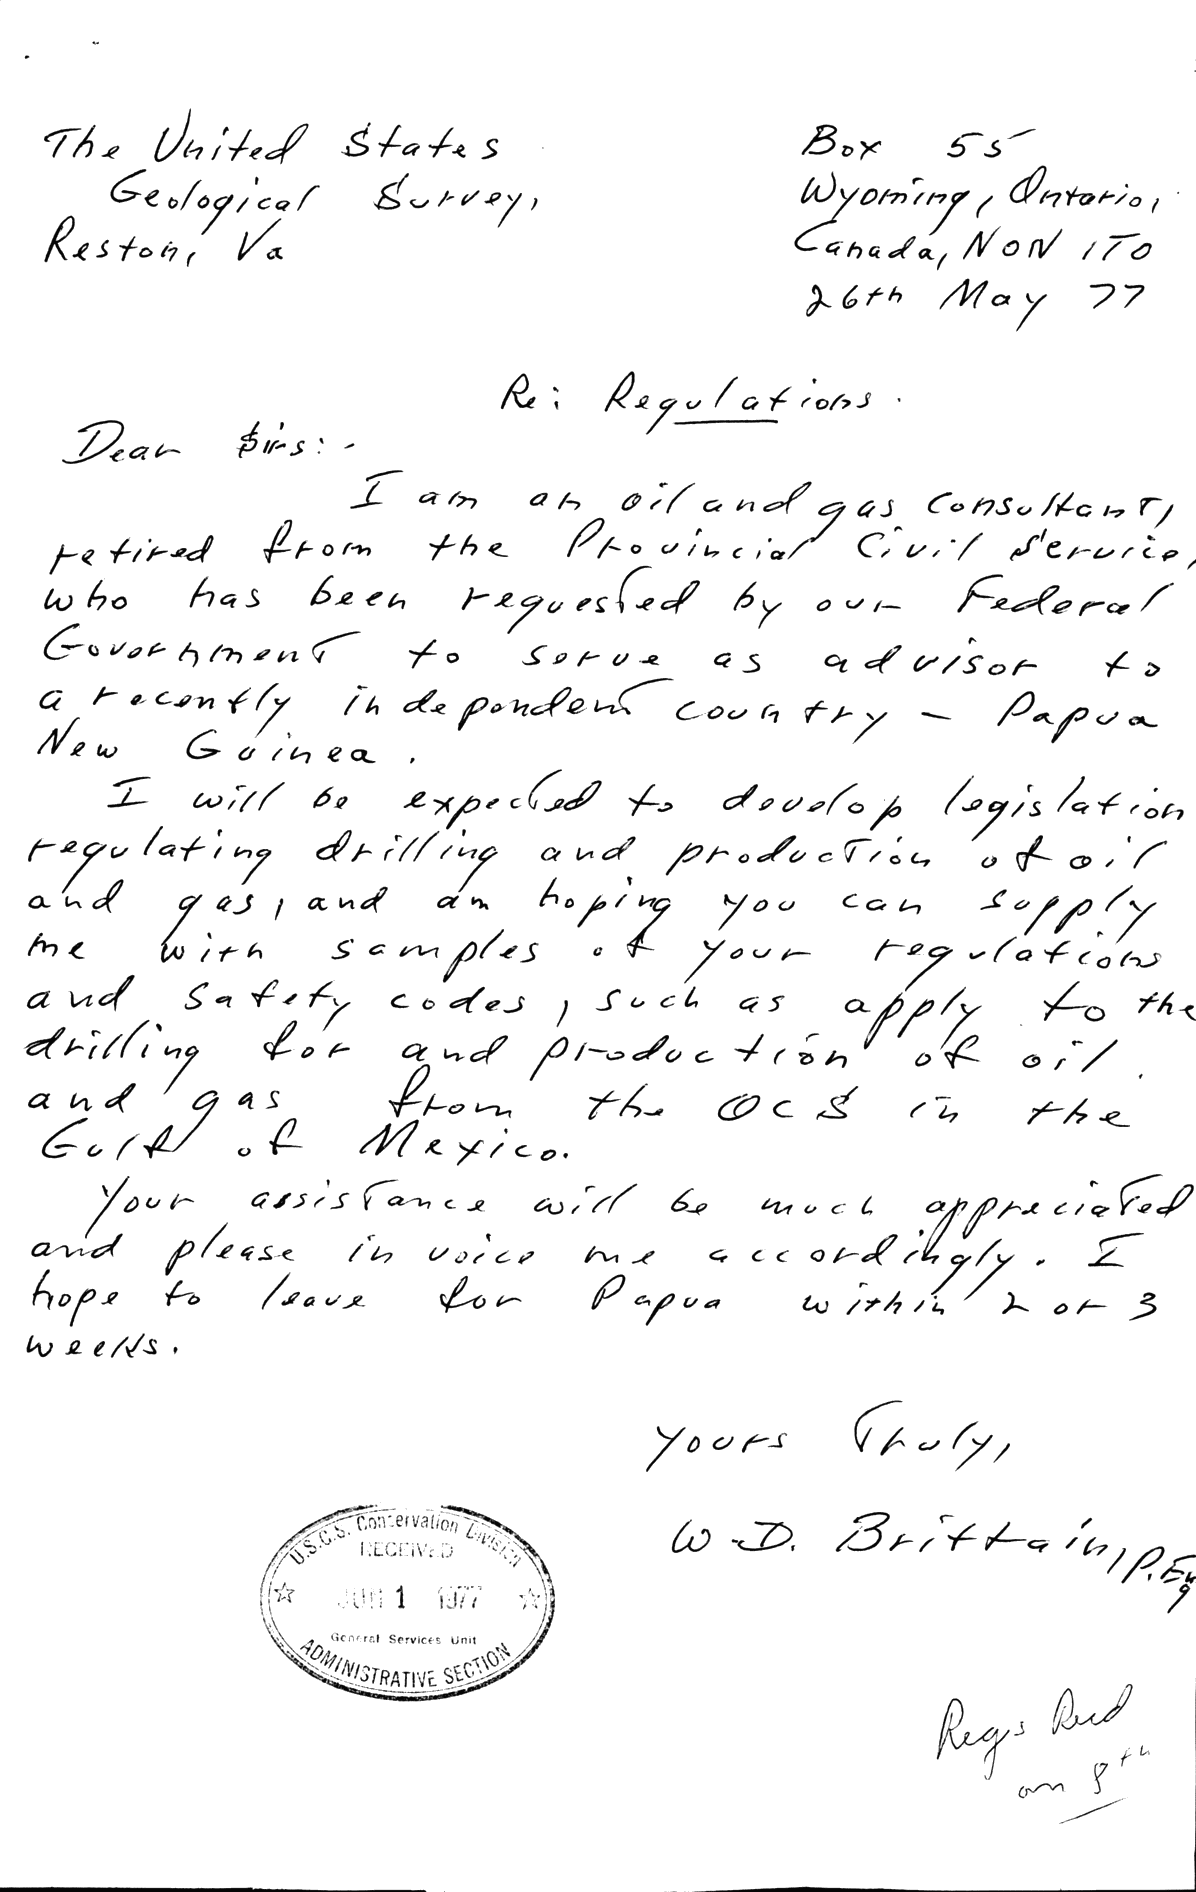 The United States
Geological Survey,
Reston, Va
Box 55
Wyoming, Ontario,
Canada, NON 1TO
26th May 77
Re: Regulations.
Dear Sirs:-
I am an oil and gas consultant,
retired from the Provincial Civil Service,
who has been requested by our Federal
Government to serve as advisor to
a recently independent country - Papua
New Guinea.
I will be expected to develop legislation
regulating drilling and production of oil
and gas, and am hoping you can supply
me with samples of your regulations
and safety codes, such as apply to the
drilling for and production of oil
and gas from the OCS in the
Gulf of Mexico.
Your assistance will be much appreciated
and please invoice me accordingly. I
hope to leave for Papua within 2 or 3
weeks.
Yours Truly,
W.D. Brittain, P.Eng
U.S.G.S. Conservation Division
RECEIVED
JUN 1 1977
General Services Unit
ADMINISTRATIVE SECTION
Regs
on 8th